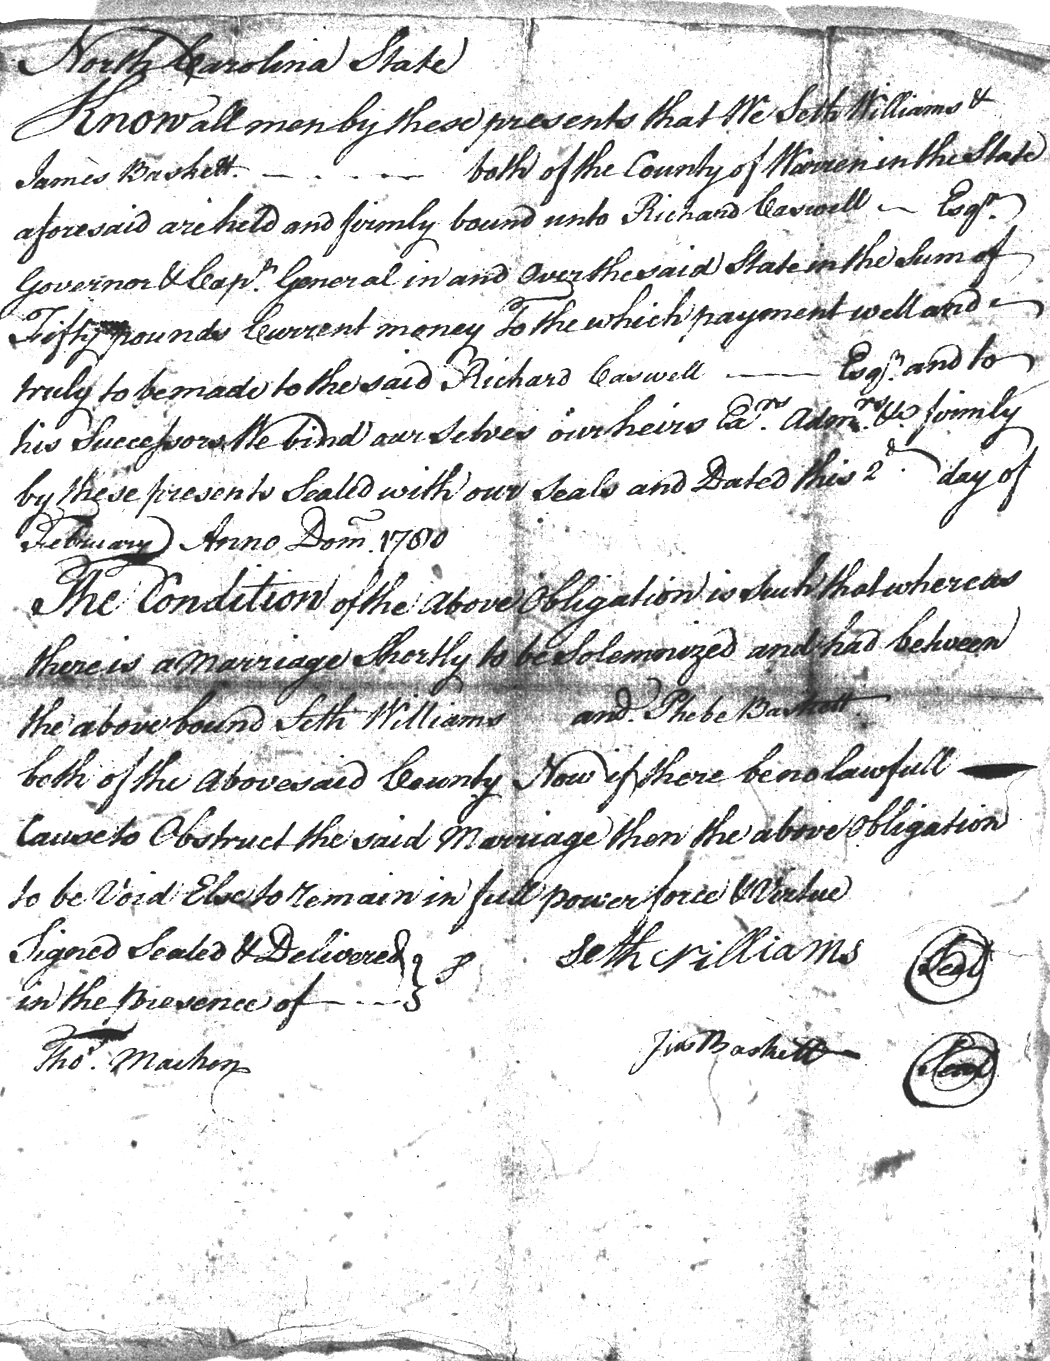 North Carolina State
Know all men by these presents that We Seth Williams &
James Baskett - - - - - both of the County of Warren in the State
aforesaid are held and firmly bound unto Richard Caswell — Esqr.
Governor & Capn. General in and Over the said State in the Sum of
Fifty pounds Current money To the which payment well and
truly to be made to the said Richard Caswell —— Esqr. and to
his Successors We bind ourselves our heirs Exrs. Admrs. &c. firmly
by these presents Sealed with our Seals and Dated this 2d. day of
February Anno Dom. 1780
The Condition of the Above Obligation is Such that whereas
there is a Marriage Shortly to be Solemnized and had between
the above bound Seth Williams and Phebe Baskett
both of the Abovesaid County Now if there be no lawfull
Cause to Obstruct the said Marriage then the above Obligation
to be Void Else to remain in full power force & Virtue
Signed Sealed & Delivered Seth Williams Seal
in the presence of - - -
Thos. Machen Jas Baskett Seal